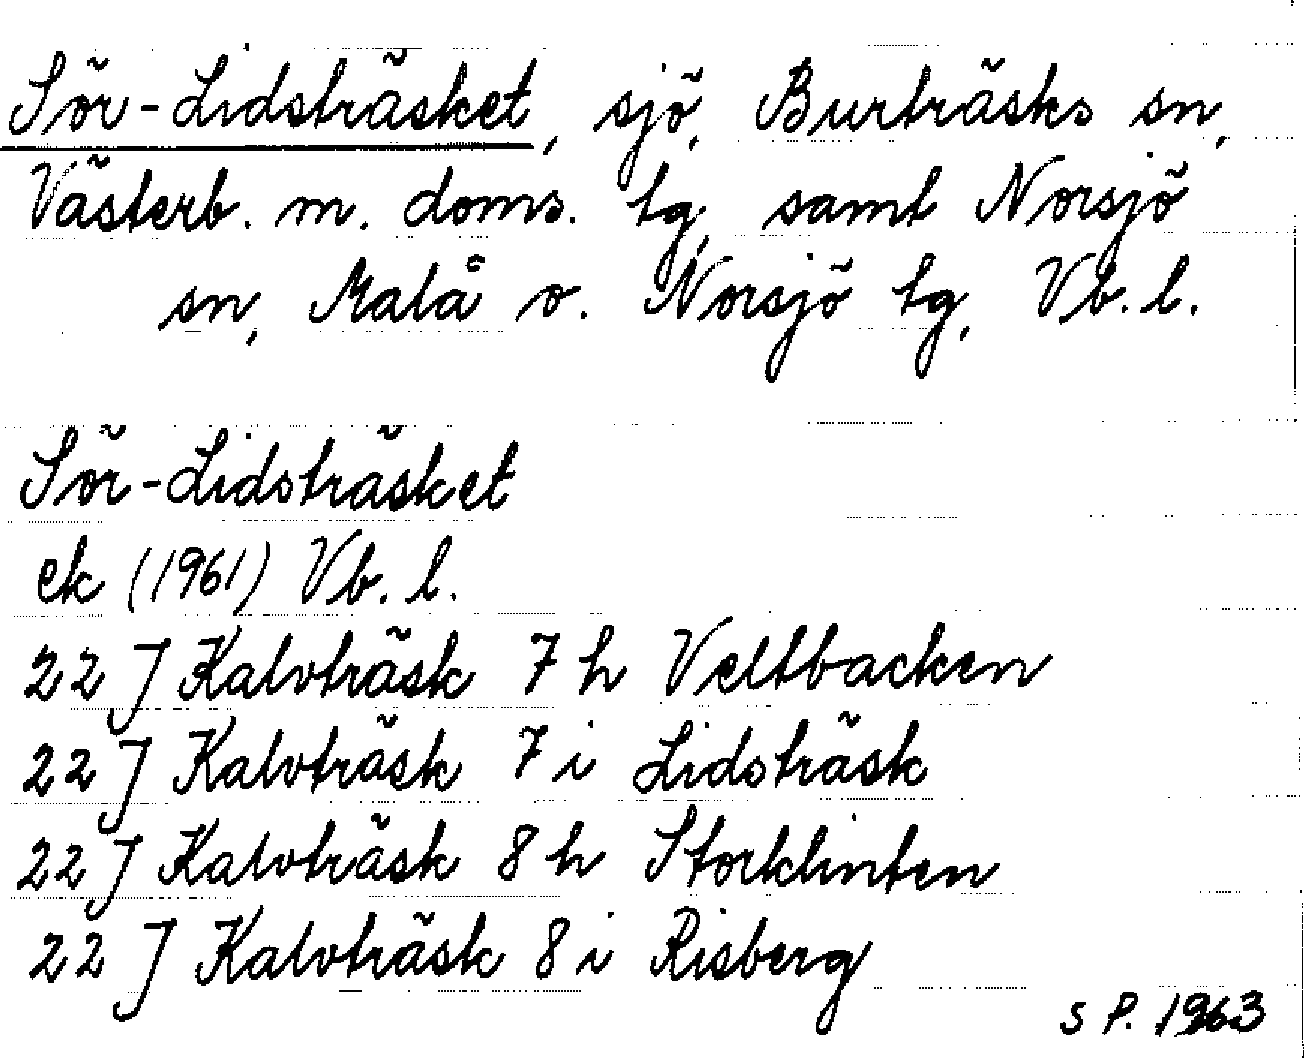 Sör-Lidsträsket, sjö, Burträsks sn,
Västerb. m. doms. tg, samt Norsjö
sn, Malå o. Norsjö tg, Vb. l.
Sör-Lidsträsket
ek (1961) Vb. l.
22 J Kalvträsk 7 h Veltbacken
22 J Kalvträsk 7 i Lidsträsk
22 J Kalvträsk 8 h Storklinten
22 J Kalvträsk 8 i Risberg
S P. 1963